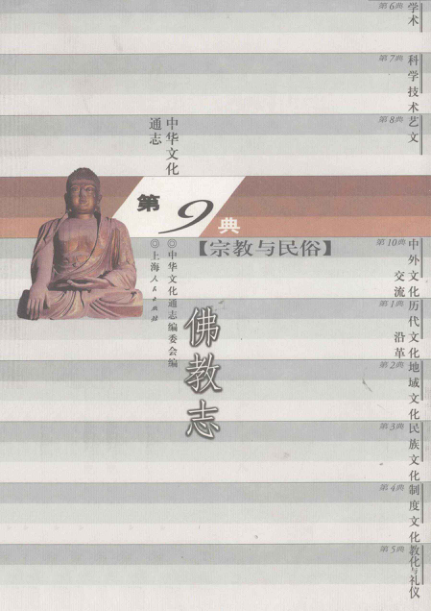 第6典
学术
第7典
科学技术
第8典
艺文
中华文化
通志
第9典
【宗教与民俗】
◎中华文化通志编委会编
◎上海人民出版社
佛教志
第10典
中外文化
交流
第1典
历代文化
沿革
第2典
地域文化
第3典
民族文化
第4典
制度文化
第5典
教化与礼仪